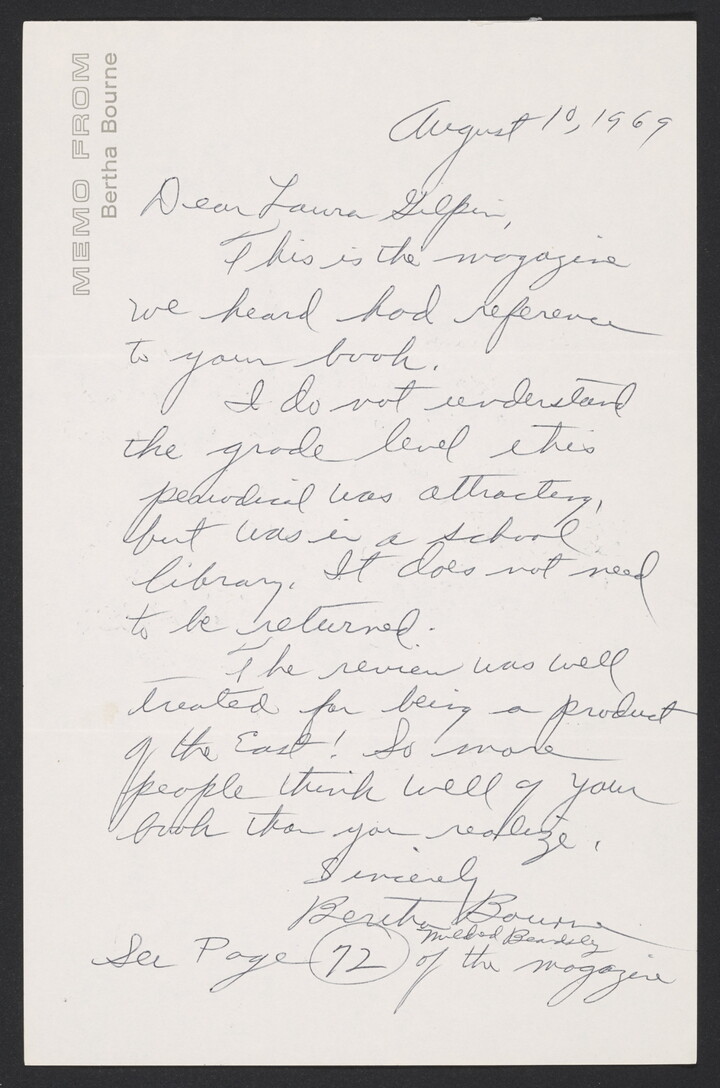 MEMO FROM
Bertha Bourne
August 10, 1969
Dear Laura Gilpin,
This is the magazine
we heard had reference
to your book.
I do not understand
the grade level this
periodical was attracting,
but was in a school
library. It does not need
to be returned.
The review was well
treated for being a product
of the East! So more
people think well of your
book than you realize.
Sincerely
Bertha Bourne
Mildred Beardsly
See Page 72 of the magazine